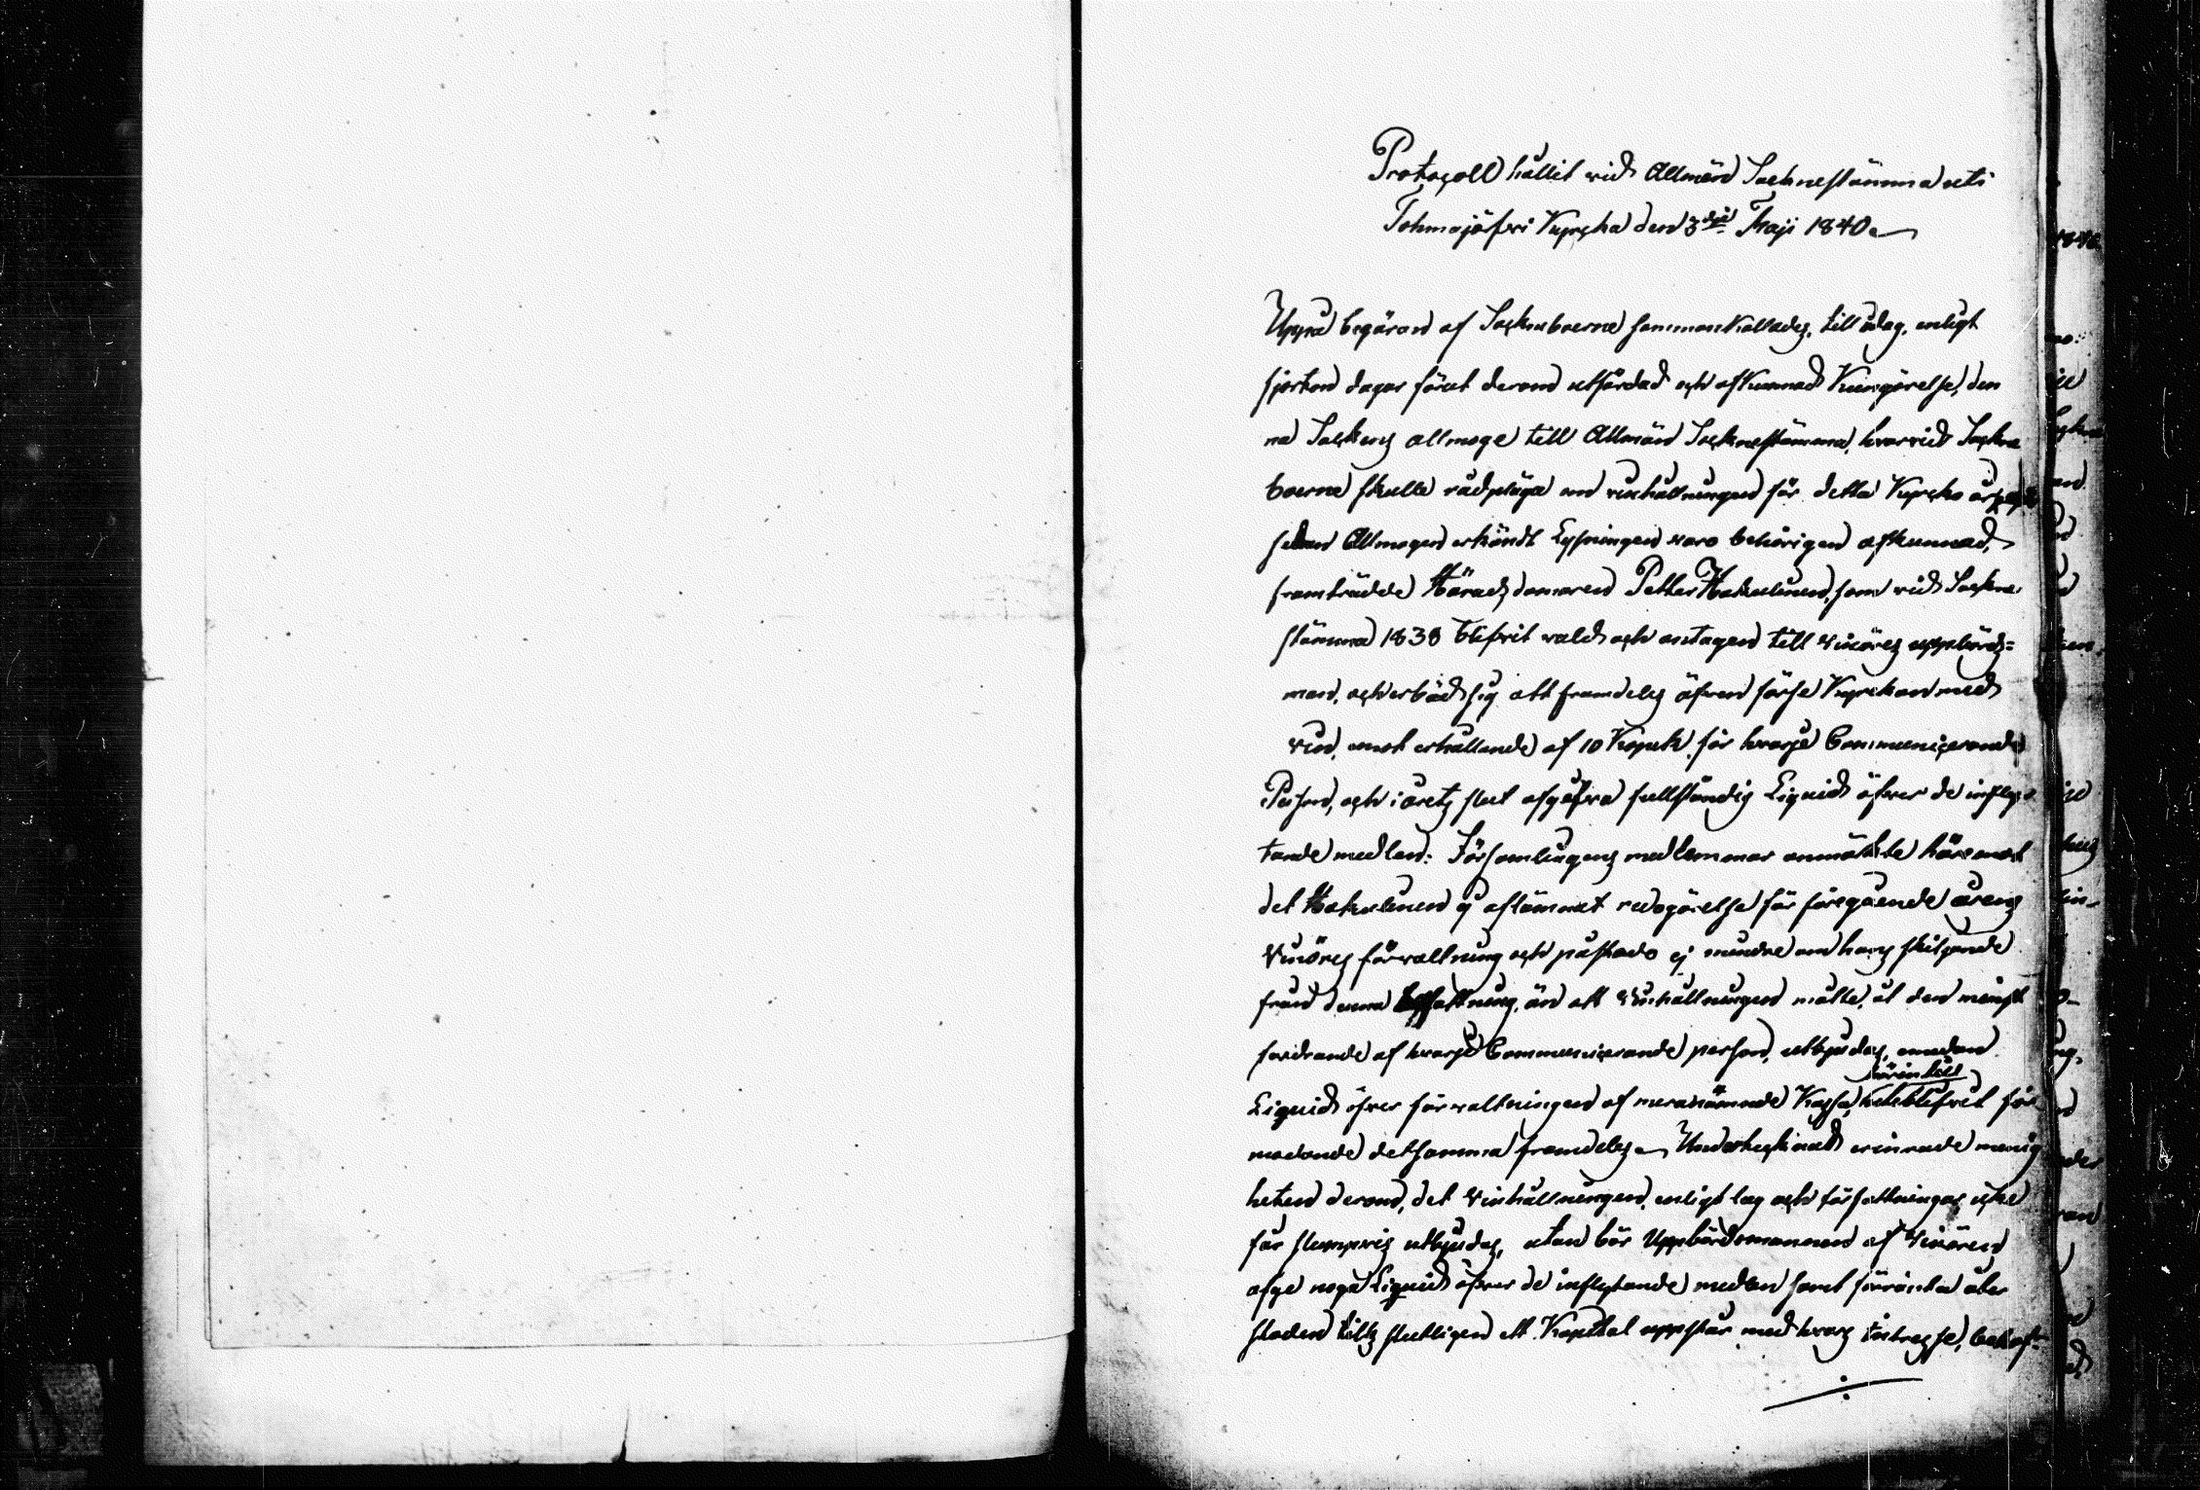 Protocoll hållit vid Allmän Sochnestämma uti
Tohmajärfvi Kyrcka den 3dje Maji 1840
Uppå begäran af Sockneboerne sammankallades, till i dag, enligt
fjorton dagar förut derom utfärdad och afkunnad Kungörelse, den
na Sockens allmoge till Allmän Socknestämma, hvarvid Sockne
boerne skulle rådpläga om vinhållningen för detta Kyrcko år, och
sedan Allmogen erkändt Lysningen vara behörigen afkunnad,
framträdde Häradsdomaren Petter Hakulinen, som vid Sockne
stämma 1838 blifvit vald och antagen till Vinöres uppbörds=
man, och erböd sig att framdeles äfven förse Kyrckan med
vin, emot erhållande af 10 Kopek för hvarje Communicerande
Person, och i årets slut afgifva fullständig Liquid öfver de infly-
tande medlen: Församlingens medlemmar anmärkte häremot
det Hakulinen ej aflämnat redogörelse för föregående årens
Vinöres förvaltning och påstodo ej mindre om hans skiljande
från denna befattning, än att Vinhållningen måtte, åt den minst
fordrande af hvarje Communicerande person, utbjudas, emedan
härintill
Liquid öfver förvaltningen af meranämnde Kassa, blifvit för
menande detsamma framdeles. Undertecknad erinrade menig
heten derom, det Vinhållningen, enligt lag och författningar icke
får slumpvis utbjudas, utan bör Uppbördsmannen af Vinören
afge noga Liquid öfver de inflytande medlen samt förränta åter
stoden tills slutligen ett Kapital uppstår, med hvars intresse,